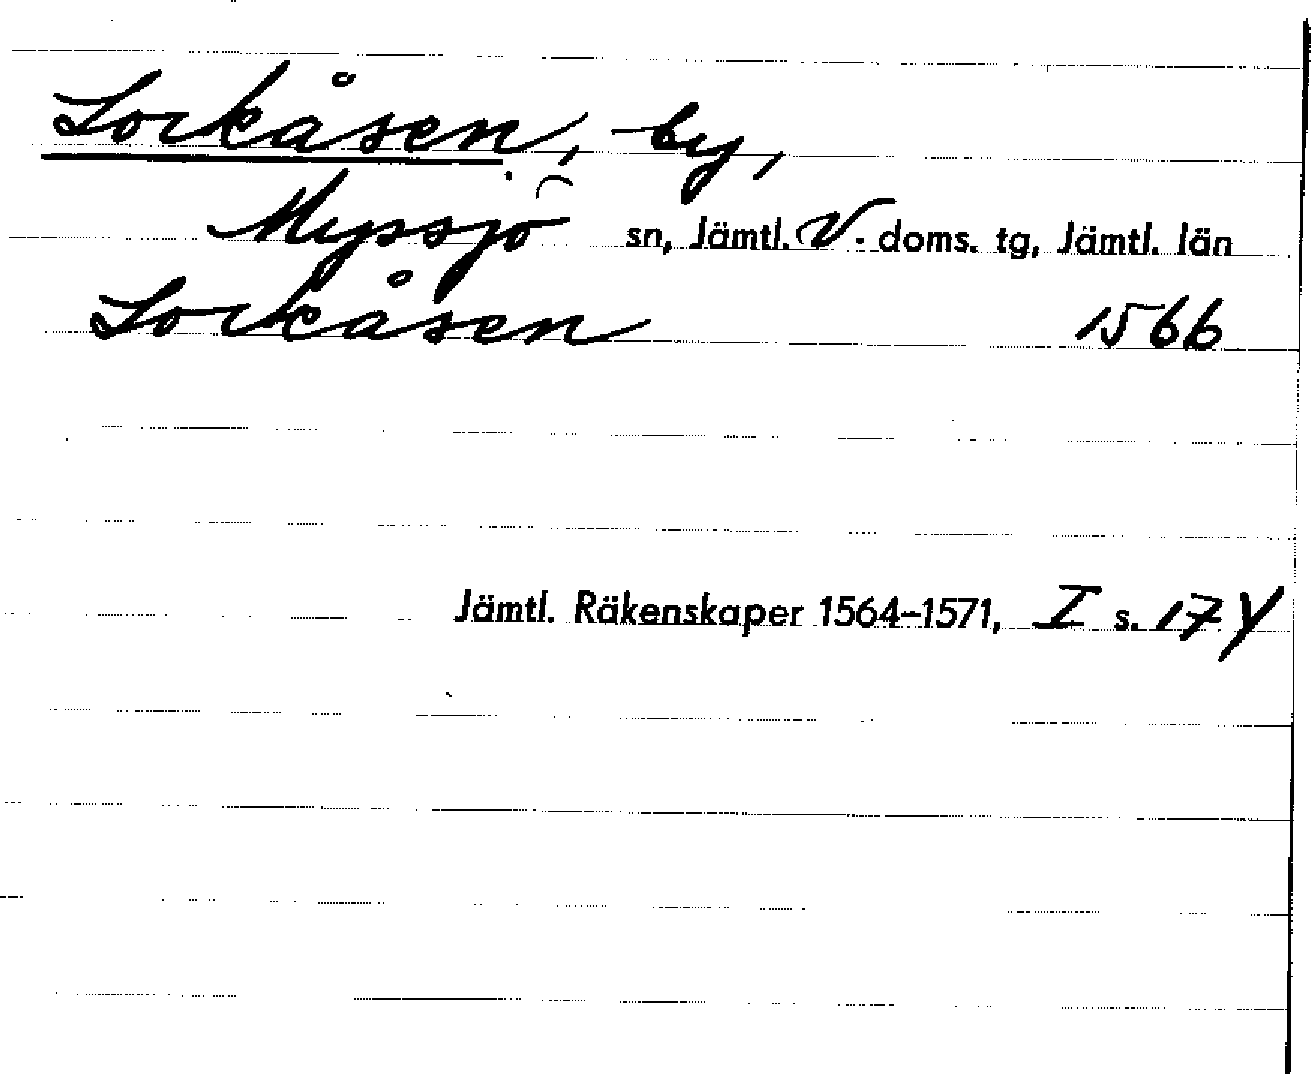 Lockåsen, by,
Myssjö sn, Jämtl. V. doms. tg, Jämtl. län
Lockåsen 1566
Jämtl. Räkenskaper 1564–1571, I s. 174